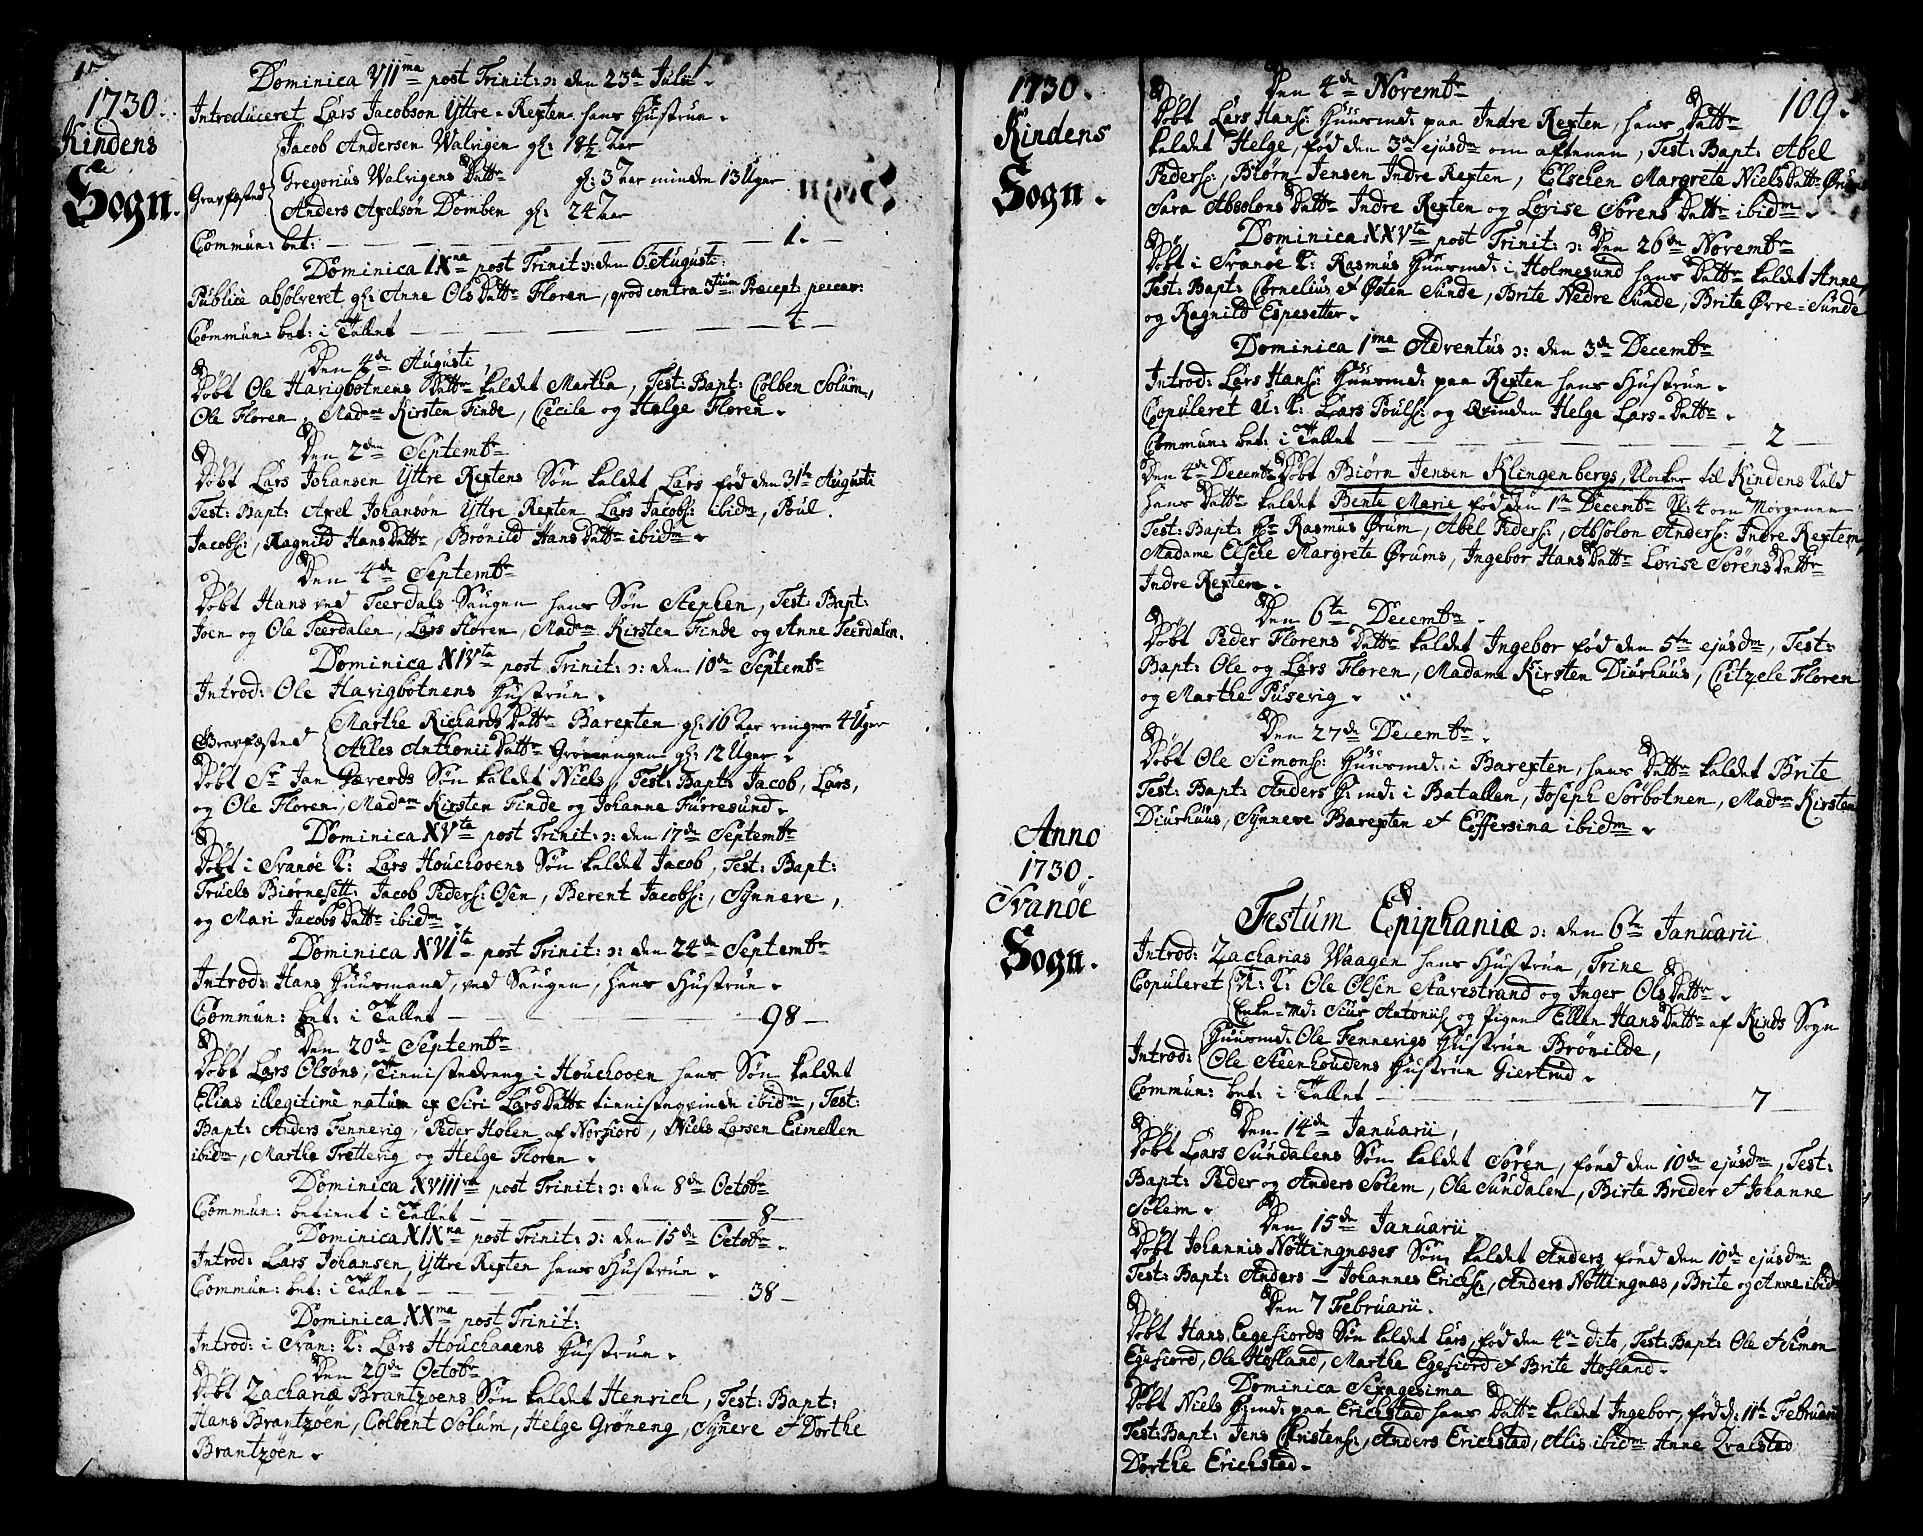 1730.
Kindens
Sogn.
Dominica VII ma post Trinit: ɔ: den 23de Julii.
Introduceret Lars Jacobsøn Yttre-Rexten hans Hustrue.
Jacob Andersen Walvigen gl: 18½ aar
Gravfæsted Gregorius Walvigens Datter gl: 3 aar minden 13 Uger
Anders Axelsøn Domben gl: 24 aar
Commun: bet: — 1.
Dominica IXna post Trinit: ɔ: den 6 Augusti.
Publicè absolveret gl: Anne Ols Datter Floren, qvod contra Præcept: peccav:
Commun: bet: i Tallet — 4 —
Den 4de Augusti,
Døbt Ole Havigbotnens Datter kaldet Martha, Test: Bapt: Colben Solum,
Ole Floren, Madam Kirsten Finde, Cecile og Helge Floren.
Den 2den Septembr
Døbt Lars Johansen Yttre Rextens Søn kaldet Lars fød den 31te Augusti
Test: Bapt: Axel Johansøn Yttre Rexten Lars Jacobs: ibidm, Poul
Jacobs:, Ragnild Hans Datter, Brønild Hans Datter ibidm.
Den 4de Septembr
Døbt Hans ved Teerdals Saugen hans Søn Stephen, Test: Bapt:
Joen og Ole Teerdalen, Lars Floren, Madam Kirsten Finde og Anne Teerdalen.
Dominica XIVta post Trinit: ɔ: den 10de Septembr
Introd: Ole Havigbotnens Hustrue.
Gravfæsted Marthe Richards Datter Barexten gl: 16 aar ringere 4 Uger
Ahles Anthonii Datter Grønengen gl: 12 Uger.
Døbt Sr Jan Gæverds Søn kaldet Niels, Test: Bapt: Jacob, Lars,
og Ole Floren, Madam Kirsten Finde og Johanne Furresund.
Dominica XVta post Trinit: ɔ: den 17de Septembr
Døbt i Svanøe K: Lars Houchovens Søn kaldet Jacob, Test: Bapt:
Truels Biørnesett: Jacob Peders: Osen, Berent Jacobs:, Synneve,
og Mari Jacobs Datter ibidm
Dominica XVIta post Trinit: ɔ: den 24de Septembr
Introd: Hans Huusmand, ved Saugen, hans Hustrue.
Commun: bet: i Tallet — 98 —
Den 20de Septembr
Døbt Lars Olsøns, Tinnistedreng i Houchoven hans Søn kaldet
Elias illegitimè natum ex Siri Lars Datter tinnisteqvinde ibidm, Test:
Bapt: Anders Fennevig, Peder Holen af Norfiord, Niels Larsen Eimellen
ibidm, Martha Trettevig og Helge Floren.
Dominica XVIIIva post Trinit: ɔ: den 8de Octobr
Commun: betient i Tallet — 8 —
Dominica XIXna post Trinit: ɔ: den 15de Octobr.
Introd: Lars Johansen, Yttre Rexten hans Hustrue.
Commun: bet: i Tallet — 38 —
Dominica XXma post Trinit:
Introd: i Svan: K: Lars Houchavens Hustrue.
Den 29de Octobr
Døbt Zachariæ Brantzøens Søn kaldet Henrich, Test: Bapt:
Hans Brantzøen, Colbent Solum, Helge Grøneng, Synere & Dorthe
Brantzøen.
1730.
Kindens
Sogn.
109.
Den 4de Novembr
Døbt Lars Hans: Huusmd: paa Indre Rexten, hans Datter
kaldet Helge, fød den 3de ejusdm om aftenen, Test: Bapt: Abel
Peders:, Biørn Jensen Indre Rexten, Elschen Margrete Niels Datter Ørums
Sara Absolons Datter Indre Rexten og Lovise Sørens Datter ibidm.
Dominica XXVta post Trinit: ɔ: Den 26de Novembr
Døbt i Svanøe K: Rasmus Huusmd: i Holmesund hans Datter kaldet Anne,
Test: Bapt: Cornelius & Østen Sunde, Brite Nedre Sunde, Brite Øvre-Sunde
og Ragnild Espesetter.
Dominica 1ma Adventus ɔ: den 3de Decembr
Introd: Lars Hans: Huusmd: paa Rexten hans Hustrue.
Copuleret U: K: Lars Pouls: og Qvinden Helge Lars-Datter.
Commun: bet: i Tallet — 2 —
Den 4de Decembr Døbt Biørn Jensen Klingenbergs, Klocker til Kindens Kald
hans Datter kaldet Bente Marie, fød den 1te Decembr Kl: 4 om Morgenen
Test: Bapt: Hr Rasmus Ørum, Abel Peders:, Absolon Anders: Indre Rexten,
Madame Elsche Margrete Ørums, Ingebor Hans Datter Lovise Sørens Datter
Indre Rexten.
Den 6te Decembr.
Døbt Peder Florens Datter kaldet Ingebor fød den 5te ejusdm, Test:
Bapt: Ole og Lars Floren, Madame Kirsten Diurhuus, Citzele Floren
og Marthe Pusevig.
Den 27de Decembr.
Døbt Ole Simons: Huusmd: i Barexten, hans Datter kaldet Brite
Test: Bapt: Anders H:md: i Batallen, Joseph Sørbotnen, Madam Kirsten
Diurhuus, Synneve Barexten & Effersina ibidm.
Anno
1730.
Svanöe
Sogn.
Festum Epiphaniæ ɔ: den 6te Januarii
Introd: Zacharias Waagen hans Hustrue, Trine
Copuleret U: K: Ole Olsen Stavestrand og Inger Ols Datter.
Enke-Md: Siur Antonii: og Pigen Ellen Hans Datter af Kinds Sogn
Introd: Huusmd: Ole Fennevigs Hustrue Brönilde,
Ole Steenhoudens Hustrue Giertrud.
Commun: bet: i Tallet — 7 —
Den 14de Januarii,
Døbt Lars Sundalens Søn kaldet Søren, fød den 10de ejusdm, Test:
Bapt: Peder og Anders Solem, Ole Sundalen, Birte Breder & Johanne
Solem.
Den 15de Januarii
Døbt Johannis Nøttingnæses Søn kaldet Anders fød den 10de ejusdm
Test: Bapt: Anders — Johannes Ericks:, Anders Nøttingnæs, Brite og Anne ibid:
Den 7 Februarii.
Døbt Hans Egefiords Søn kaldet Lars, fød den 4de dito, Test: Bapt: Ole & Simon
Egefiord, Ole Hofland, Marthe Egefiord & Brite Hofland.
Dominica Sexagesima
Døbt Niels H:md: paa Erickstad hans Datter kaldet Ingebor, fød d: 11te Februarii
Test: Bapt: Jens Christens:, Anders Erickstad, Alis ibidm Anne Qvalstad
Dorthe Erickstad.